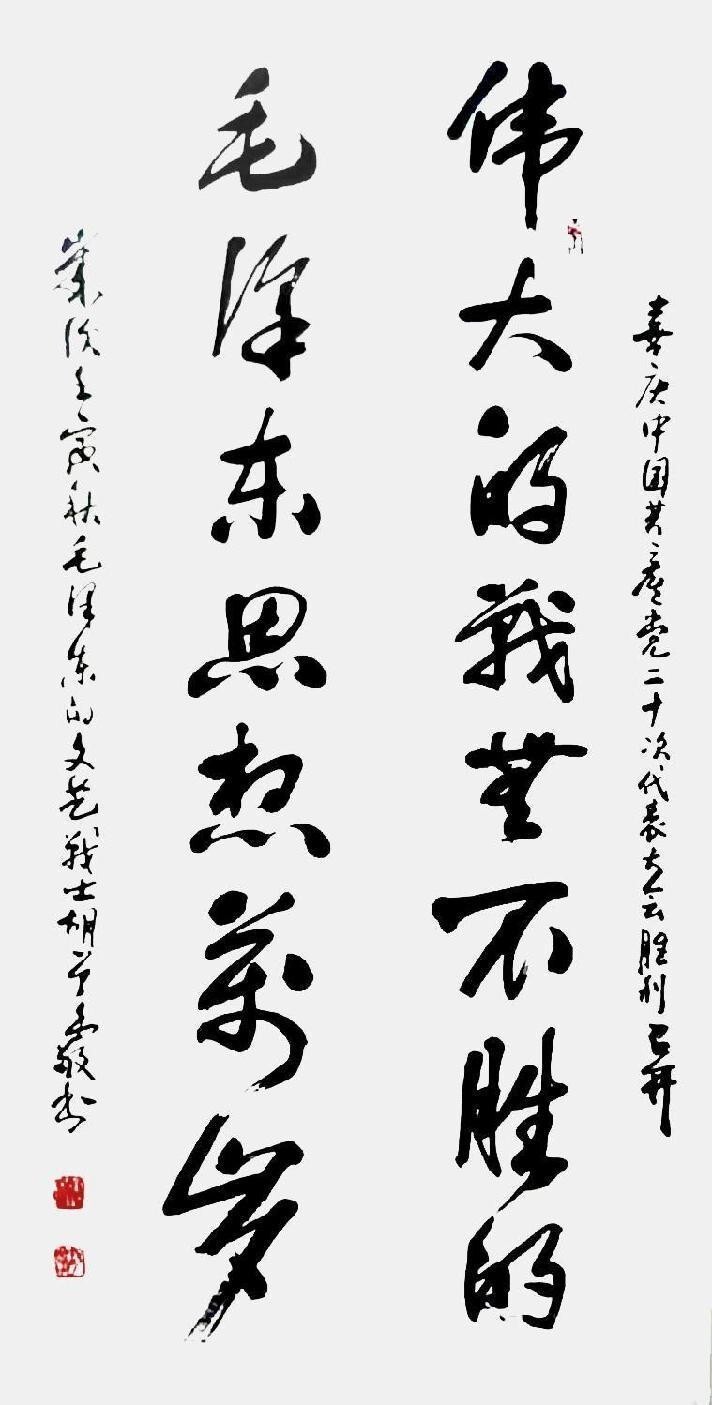 喜庆中国共产党二十次代表大会胜利召开
伟大的战無不胜的
毛泽东思想萬岁
岁次壬寅秋毛泽东的文艺战士胡
敬书